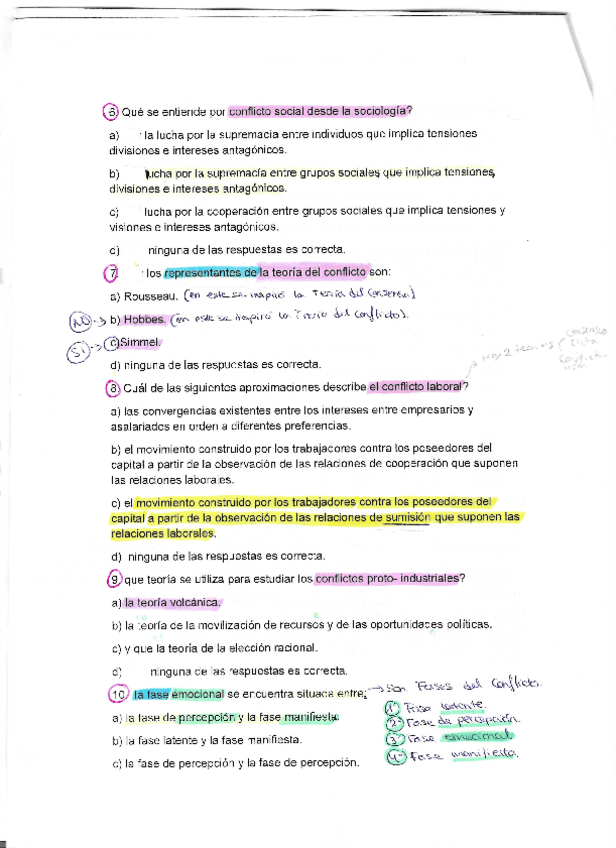 6. Qué se entiende por conflicto social desde la sociología?
a) la lucha por la supremacia entre individuos que implica tensiones
divisiones e intereses antagónicos.
b) lucha por la supremacía entre grupos sociales que implica tensiones,
divisiones e intereses antagónicos.
c) lucha por la cooperación entre grupos sociales que implica tensiones y
visiones e intereses antagónicos.
d) ninguna de las respuestas es correcta.
7. los representantes de la teoría del conflicto son:
a) Rousseau. (en este se inspiró la Teoría del Consenso)
NO → b) Hobbes. (en este se inspiró la Teoría del Conflicto).
SI → c) Simmel.
d) ninguna de las respuestas es correcta.
8. Cuál de las siguientes aproximaciones describe el conflicto laboral?
Hay 2 teorías
a) las convergencias existentes entre los intereses entre empresarios y
asalariados en orden a diferentes preferencias.
b) el movimiento construido por los trabajadores contra los poseedores del
capital a partir de la observación de las relaciones de cooperación que suponen
las relaciones laborales.
c) el movimiento construido por los trabajadores contra los poseedores del
capital a partir de la observación de las relaciones de sumisión que suponen las
relaciones laborales.
d) ninguna de las respuestas es correcta.
9. que teoría se utiliza para estudiar los conflictos proto- industriales?
a) la teoría volcánica.
b) la teoría de la movilización de recursos y de las oportunidades políticas.
c) y que la teoría de la elección racional.
d) ninguna de las respuestas es correcta.
10. la fase emocional se encuentra situada entre: → son Fases del Conflicto.
1ª Fase latente.
a) la fase de percepción y la fase manifiesta
2ª Fase de percepción.
b) la fase latente y la fase manifiesta.
3ª Fase emocional
c) la fase de percepción y la fase de percepción.
4ª Fase manifiesta.